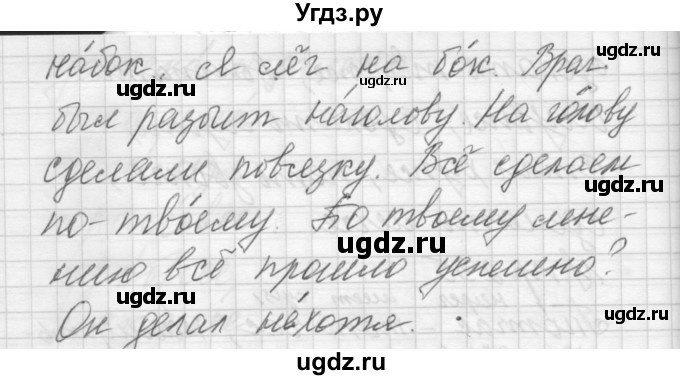 Угдз.ру
на́бок. Я лёг на бо́к. Враг
был разбит на́голову. На го́лову
сделали повязку. Всё сделаем
по-тво́ему. По твоему мне-
нию всё прошло успешно?
Он делал не́хотя.
ugdz.ru
ugdz.ru
ugdz.ru
ugdz.ru
ugdz.ru
ugdz.ru
ugdz.ru
ugdz.ru
ugdz.ru
ugdz.ru